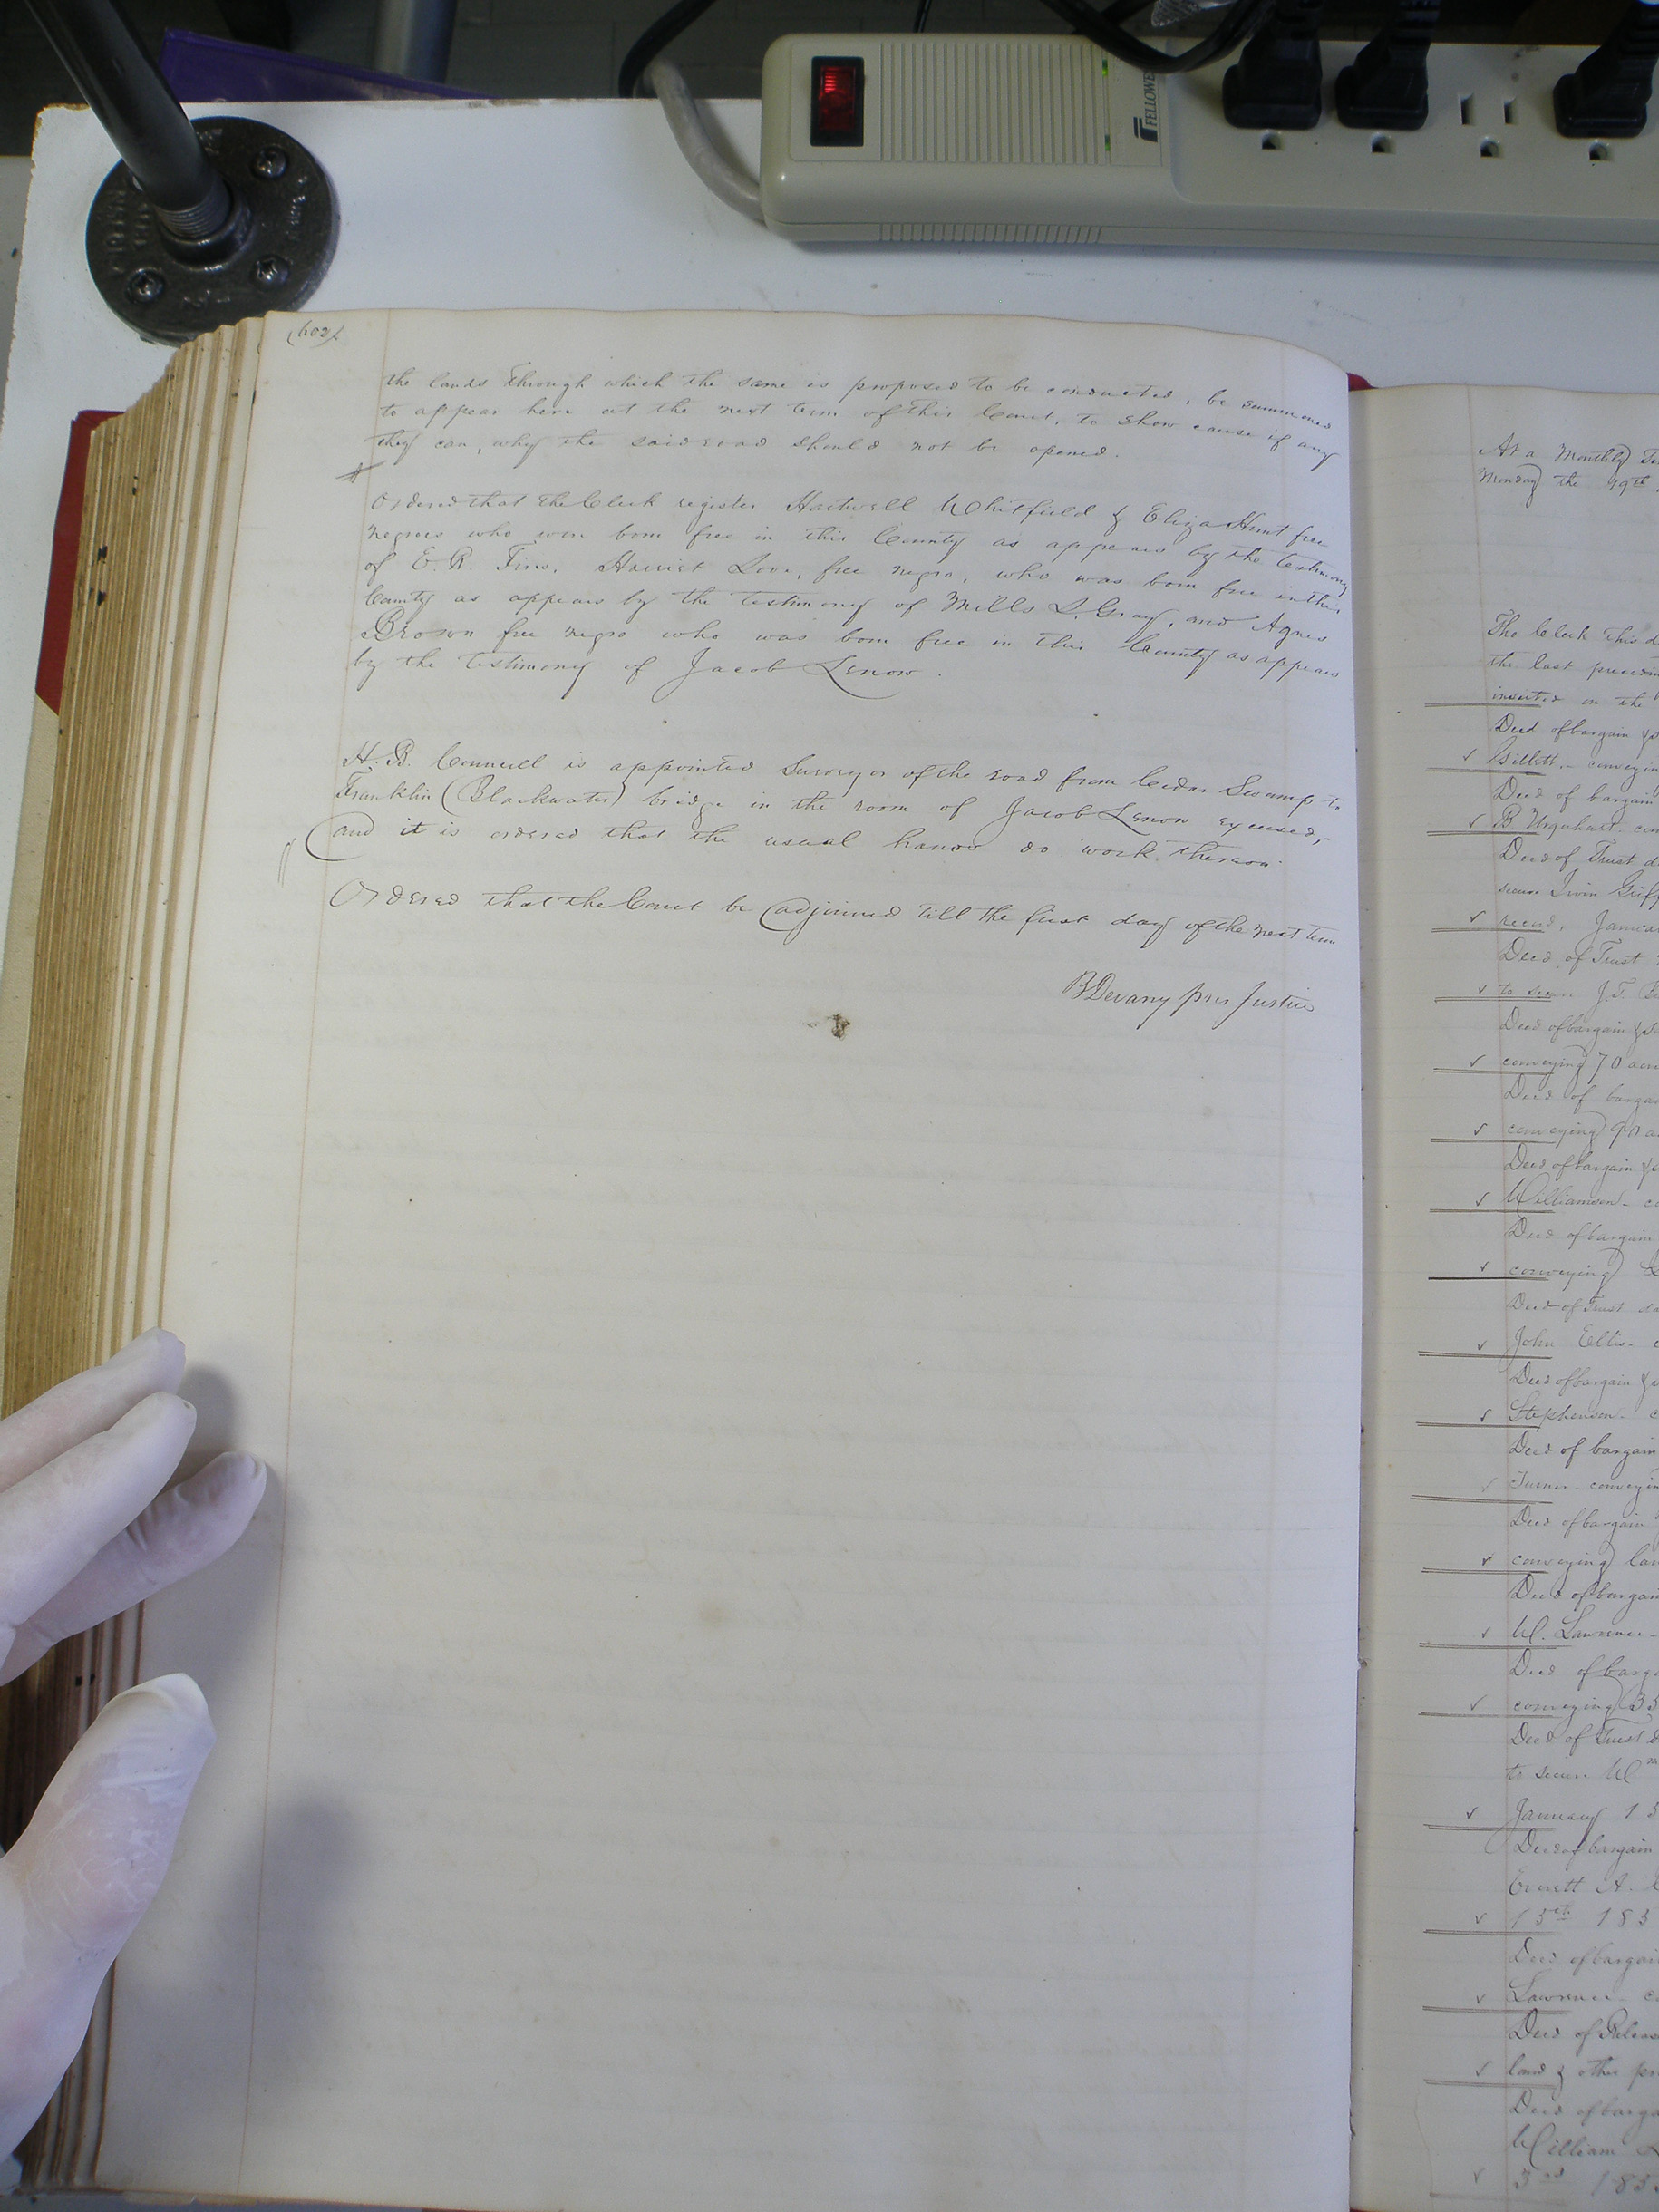 FELLOWES
(602)
the lands through which the same is proposed to be conducted, be summoned
to appear here at the next term of this Court, to show cause if any
they can, why the said road should not be opened.
Ordered that the Clerk register Hartwell Whitfield & Eliza Hunt free
negroes who were born free in this County as appears by the testimony
of E. R. Harriet Love, free negro, who was born free in this
County as appears by the testimony of Mills L. Gray, and Agnes
Brown free negro who was born free in this County as appears
by the testimony of Jacob Lenow.
H. B. is appointed Surveyor of the road from Cedar Swamp to
Franklin (Blackwater) bridge in the room of Jacob Lenow excused,
and it is ordered that the usual hands do work thereon.
Ordered that the Court be adjourned till the first day of the next term
B Devany pres Justice
At a Monthly
Monday the 19th
The Clerk this d
the last
inserted on the
Deed of bargain &
Gillett, - conveyin
Deed of bargain
B Urquhart - con
Deed of Trust d
secure Irvin Griff
record,
Deed of Trust
to secure J. T.
Deed of bargain &
conveying 70 acre
Deed of bargai
conveying 90 a
Deed of bargain &
Williamson - co
Deed of bargain
conveying
Deed of Trust
John Ellis -
Deed of bargain &
Stephenson - c
Deed of bargain
Turner conveyin
Deed of bargain
conveying lan
Deed of bargain
W. Lawrence -
Deed of barg
conveying 33
Deed of Trust
to secure Wm
January 13
Deed of bargain
Everett A.
13th 183
Deed of bargai
Lawrence - c
Deed of Releas
land & other pr
Deed of barga
William
3rd 183